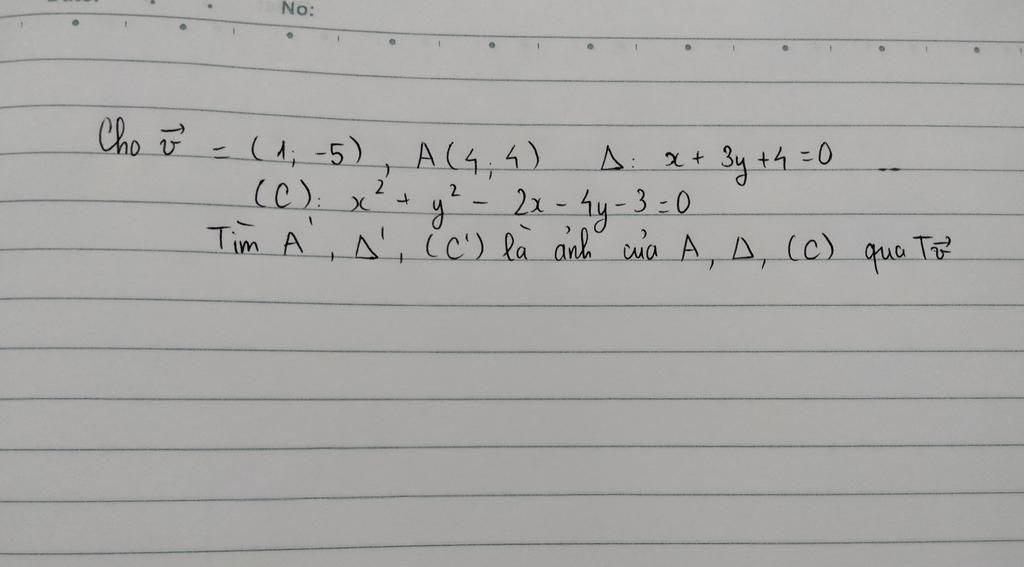 No:
Cho v⃗ = (1; -5), A(4; 4) Δ: x + 3y + 4 = 0
(C): x² + y² - 2x - 4y - 3 = 0
Tìm A', Δ', (C') là ảnh của A, Δ, (C) qua Tv⃗